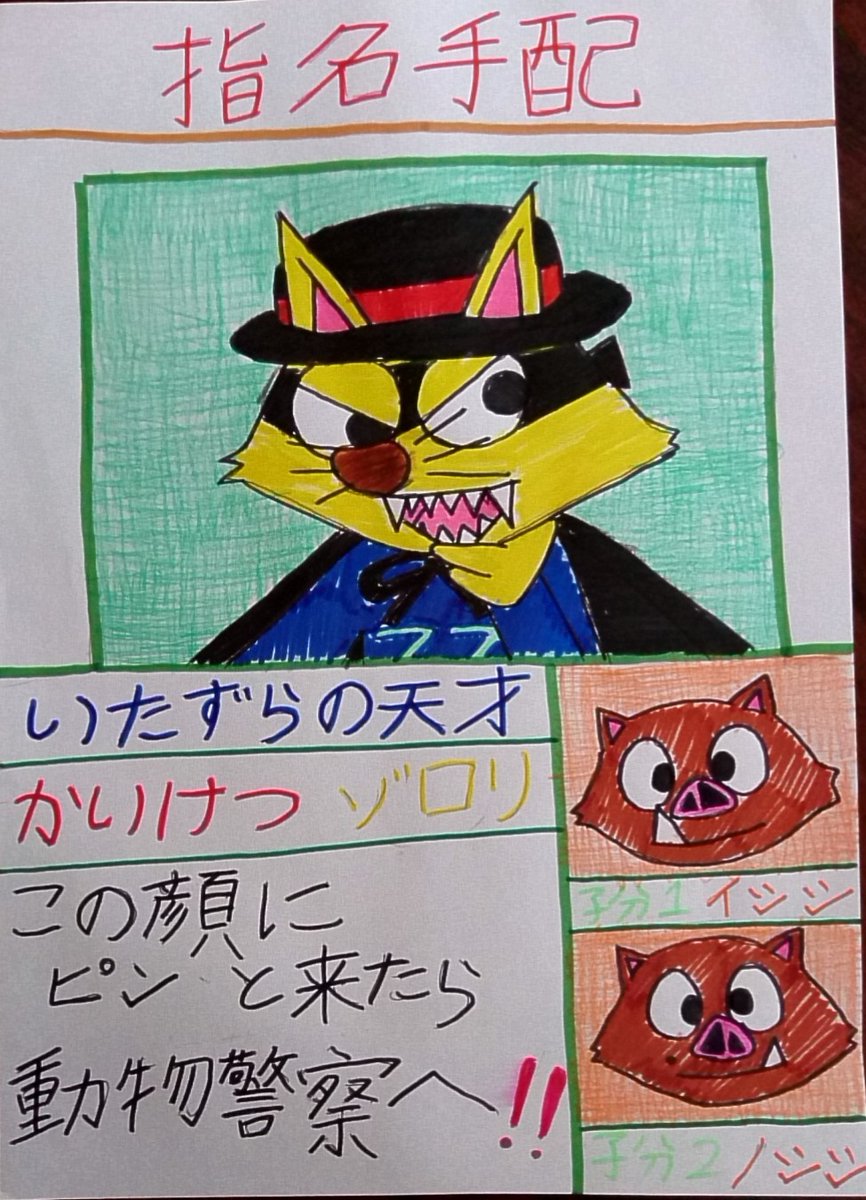 指名手配
ZZ
いたずらの天才
かいけつ ゾロリ
この顔に
ピンと来たら
動物警察へ!!
子分1 イシシ
子分2 ノシシ